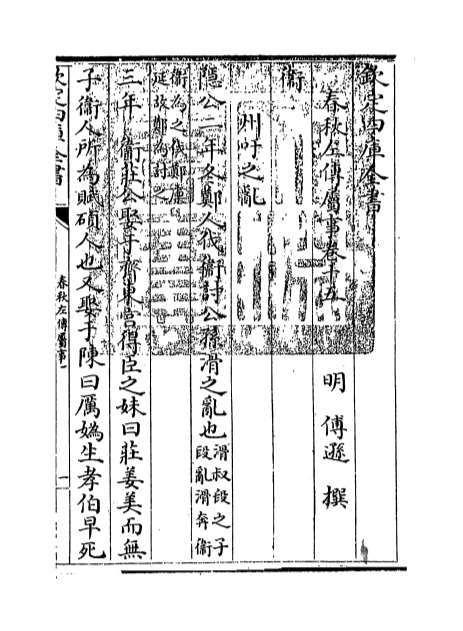 欽定四庫全書
春秋左傳屬事卷十五
明 傅遜 撰
衛
州吁之亂
隱公二年冬鄭人伐衛討公孫滑之亂也滑叔段之子段亂滑奔衛
衛為之伐鄭廩延故鄭為討之
三年衛莊公娶于齊東宮得臣之妹曰莊姜美而無
子衛人所為賦碩人也又娶于陳曰厲媯生孝伯早死
欽定四庫全書
春秋左傳屬事
一